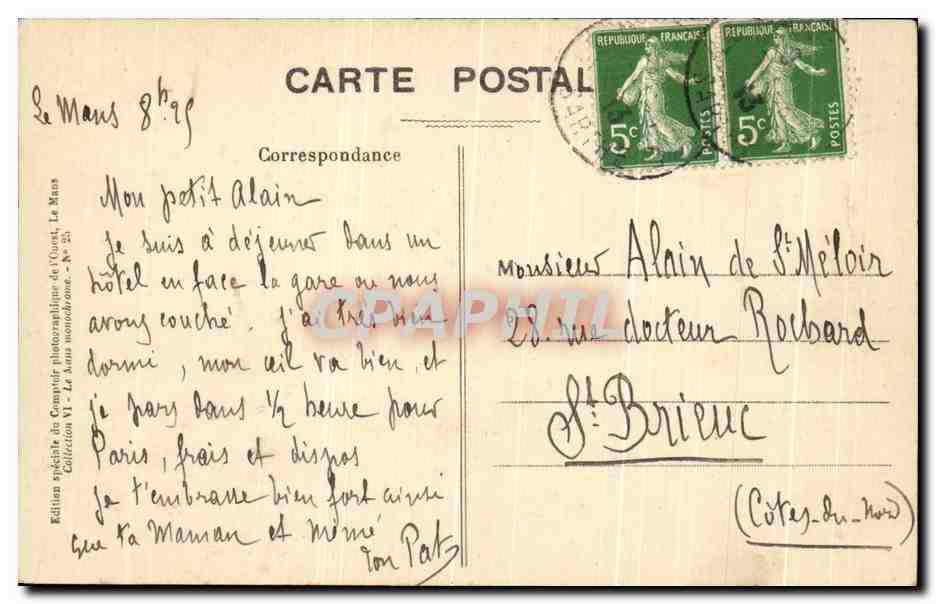 CARTE POSTALE
REPUBLIQUE FRANÇAISE
5c
POSTES
REPUBLIQUE FRANÇAISE
5c
POSTES
Le Mans 8h25
Correspondance
Mon petit Alain
Je suis à déjeuner dans un
hôtel en face la gare où nous
avons couché. J'ai très bien
dormi, mon œil va bien, et
je pars dans 1/2 heure pour
Paris, frais et dispos
Je t'embrasse bien fort ainsi
que ta Maman et Mémé
ton Pat
Monsieur Alain de St Méloir
28. rue docteur Rochard
St. Brieuc
(Côtes-du-Nord)
Edition spéciale du Comptoir photographique de l'Ouest, Le Mans
Collection VI - Le Mans monochrome. - No 25
CPAPHIL